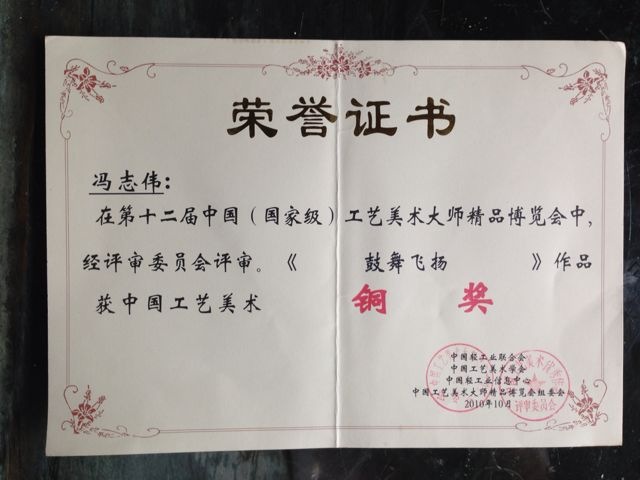 荣誉证书
冯志伟：
在第十二届中国（国家级）工艺美术大师精品博览会中，
经评审委员会评审。《 鼓舞飞扬 》作品
获中国工艺美术 铜 奖
中国轻工业联合会
中国工艺美术学会
中国轻工业信息中心
中国工艺美术大师精品博览会组委会
2010年10月
评审委员会